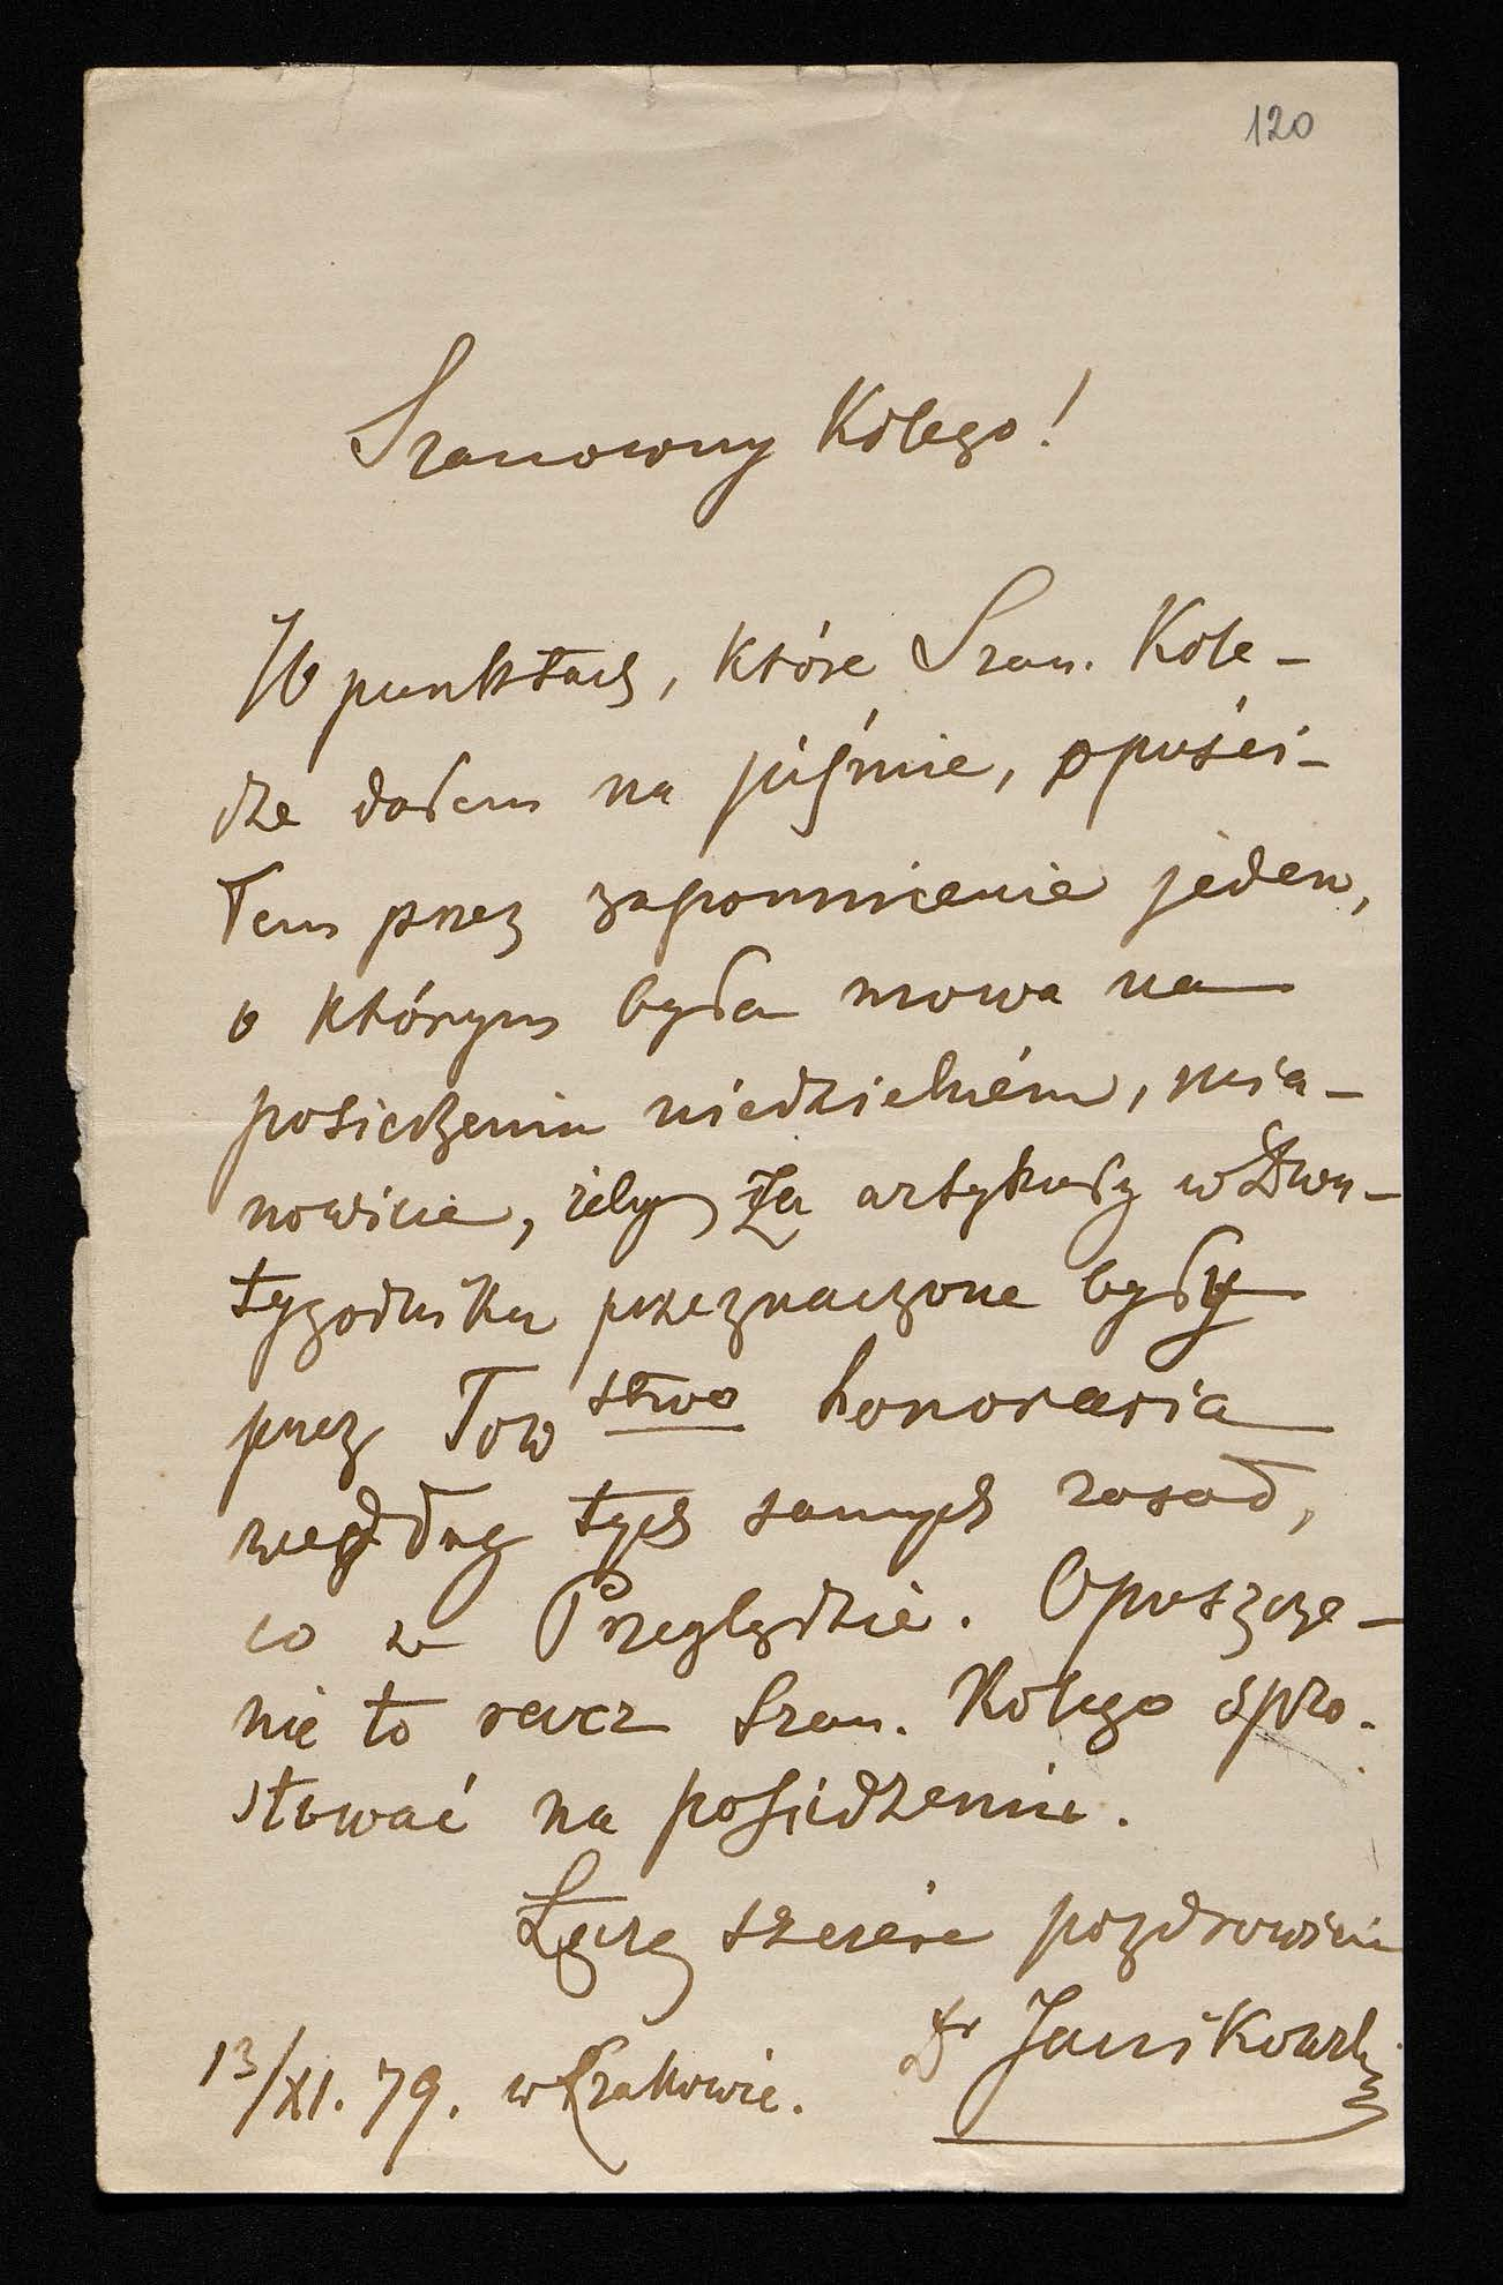 120
Szanowny Kolego!
W punktach, które Szan. Kole-
dze dałem na piśmie, opuści-
łem przez zapomnienie jeden,
o którym była mowa na
posiedzeniu niedzielném, mia-
nowicie, żeby za artykuły w Dwu-
tygodniku przeznaczone były
przez Tow stwo honoraria
według tych samych zasad,
co w Przeglądzie. Opuszcze-
nie to racz Szan. Kolego spro-
stować na posiedzeniu.
Łączę szczére pozdrowienie
Dr Janikowski
13/XI. 79. w Krakowie.